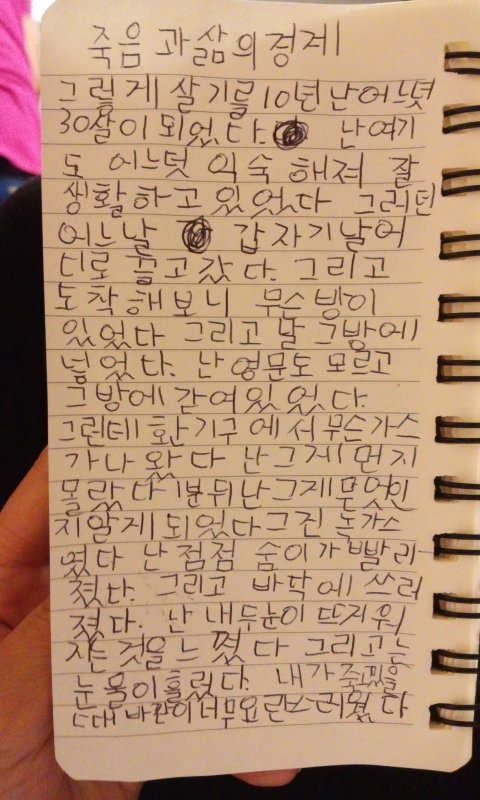 죽음 과삶의경계
그렇게 살기를10년난어느덧
30살이되었다. 난여기
도 어느덧 익숙해져 잘
생활하고있었다 그러던
어느날 갑자기날어
디로 끌고갔다. 그리고
도착해보니 무슨방이
있었다 그리고날그방에
넣었다. 난영문도모르고
그방에갇여있었다.
그런데환기구에서무슨가스
가나왔다난그게먼지
몰랐다 1분뒤난그게무엇인
지알게되었다그건독가스
였다 난점점 숨이가빨리
졌다. 그리고 바닥에쓰러
졌다. 난내두눈이뜨거워
지는것을느꼈다 그리고는
눈물이흘렀다. 내가죽었을
때 너무요란스러웠다